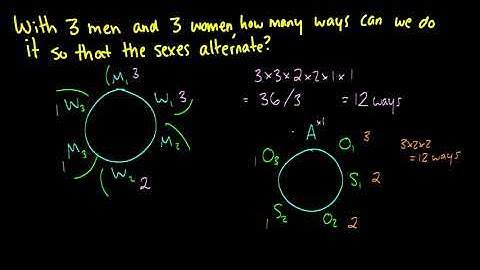 With 3 men and 3 women, how many ways can we do
it so that the sexes alternate?
M₁ 3
1 W₃
W₁ 3
M₃
1
M₂
W₂
2
3×3×2×2×1×1
= 36/3 = 12 ways
A ×1
O₁ 3
1 O₃
S₁ 2
1 S₂
O₂ 2
3×2×2
= 12 ways